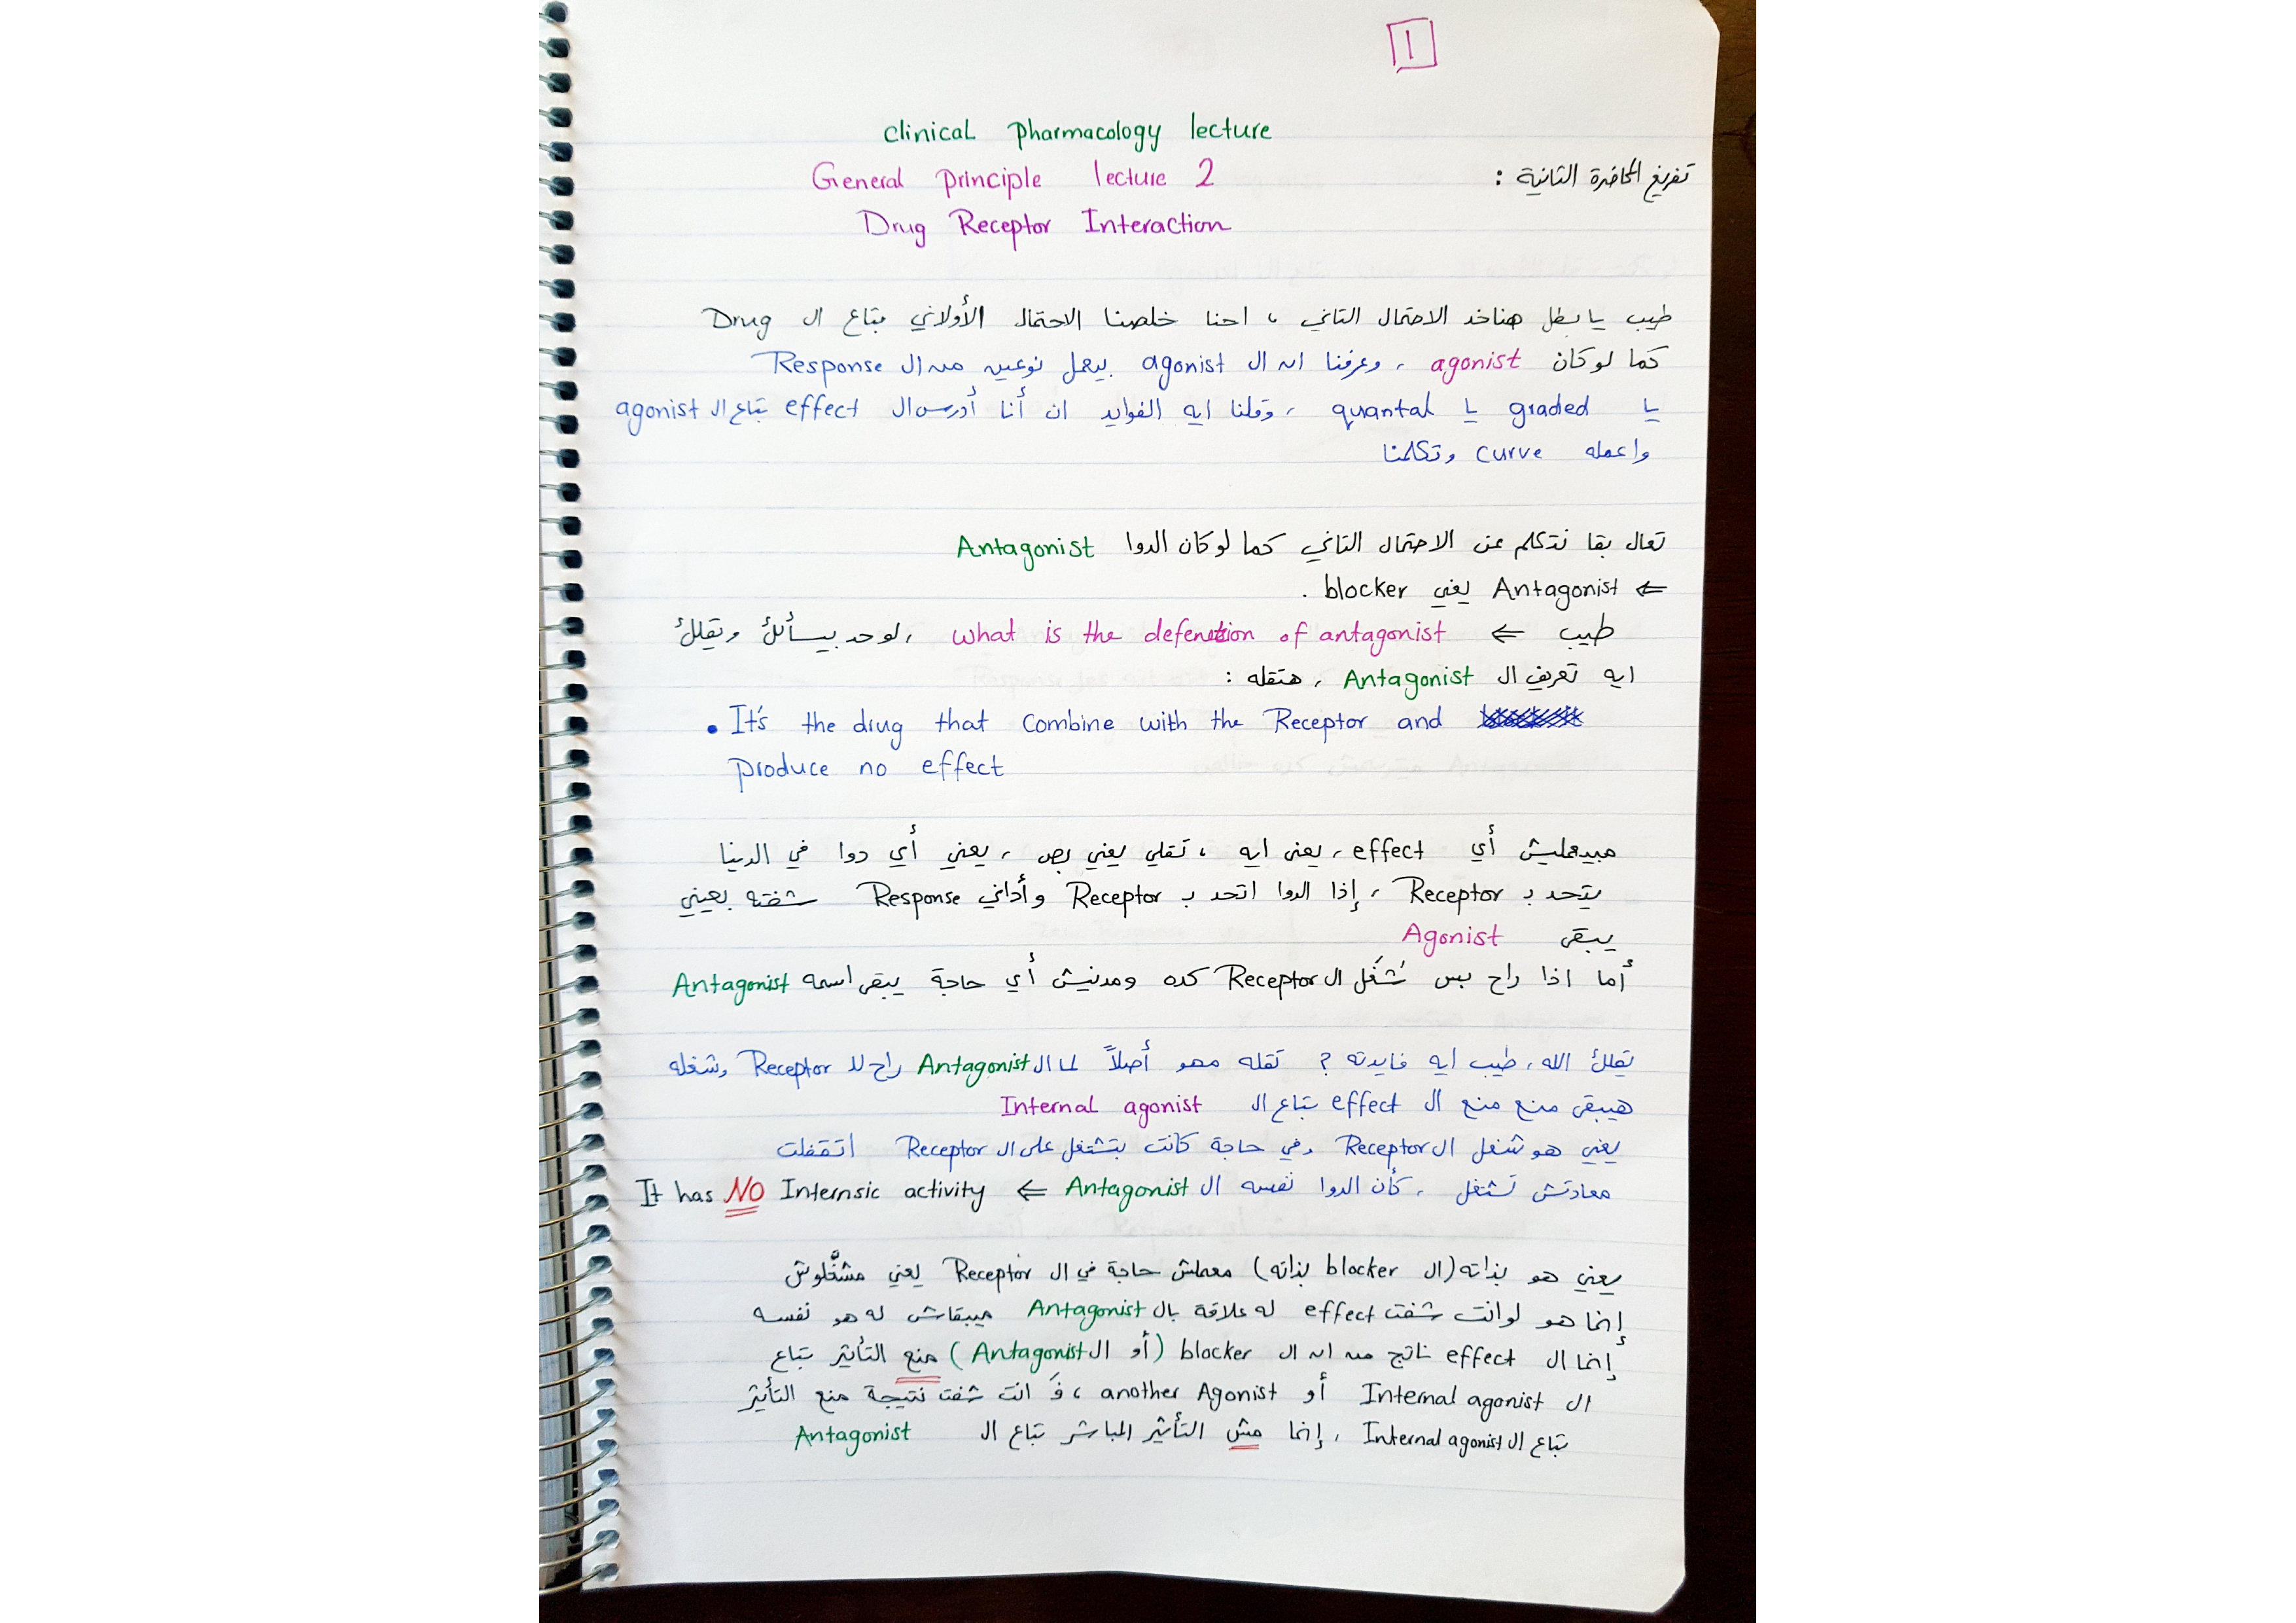 1
clinical pharmacology lecture
General principle lecture 2
تفريغ المحاضرة الثانية :
Drug Receptor Interaction
طيب يا بطل هناخد الاحتمال التاني ، احنا خلصنا الاحتمال الأولاني بتاع ال Drug
كما لو كان agonist ، وعرفنا ان ال agonist بيعمل نوعين من ال Response
يا graded يا quantal ، وقلنا ايه الفوايد ان أنا أدرس ال effect بتاع ال agonist
واعمله curve وتكلمنا
تعال بقا نتكلم عن الاحتمال التاني كما لو كان الدوا Antagonist
⇐ Antagonist يعني blocker .
طيب ⇐ what is the defenetion of antagonist ، لو حد بيسألك وتقلك
ايه تعريف ال Antagonist ، هتقله :
• It's the drug that combine with the Receptor and
produce no effect
مبيعمليش أي effect ، يعنى ايه ، تقلي يعني بص ، يعني أي دوا في الدينا
يتحد ب Receptor ، إذا الدوا اتحد ب Receptor وأداني Response شفته بعيني
يبقى Agonist
أما اذا راح بس شغل ال Receptor كده ومدنيش أي حاجة يبقى اسمه Antagonist
تقلك الله ، طيب ايه فايدته ? تقله مهو أصلاً لما ال Antagonist راح لل Receptor وشغله
هيبقى منع منع ال effect بتاع ال Internal agonist
يعني هو شغل ال Receptor وفي حاجة كانت بتشتغل على ال Receptor اتقفلت
معادتش تشتغل ، كأن الدوا نفسه ال Antagonist ⇐ It has NO Internsic activity
يعني هو بذاته (ال blocker بذاته) معملش حاجة في ال Receptor يعني مشغلوش
إنما هو لو انت شفت effect له علاقة بال Antagonist ميبقاش له هو نفسه
إنما ال effect ناتج من ان ال blocker (أو ال Antagonist) منع التأثير بتاع
ال Internal agonist أو another Agonist ، فَ انت شفت نتيجة منع التأثير
بتاع ال Internal agonist ، إنما مش التأثير المباشر بتاع ال Antagonist